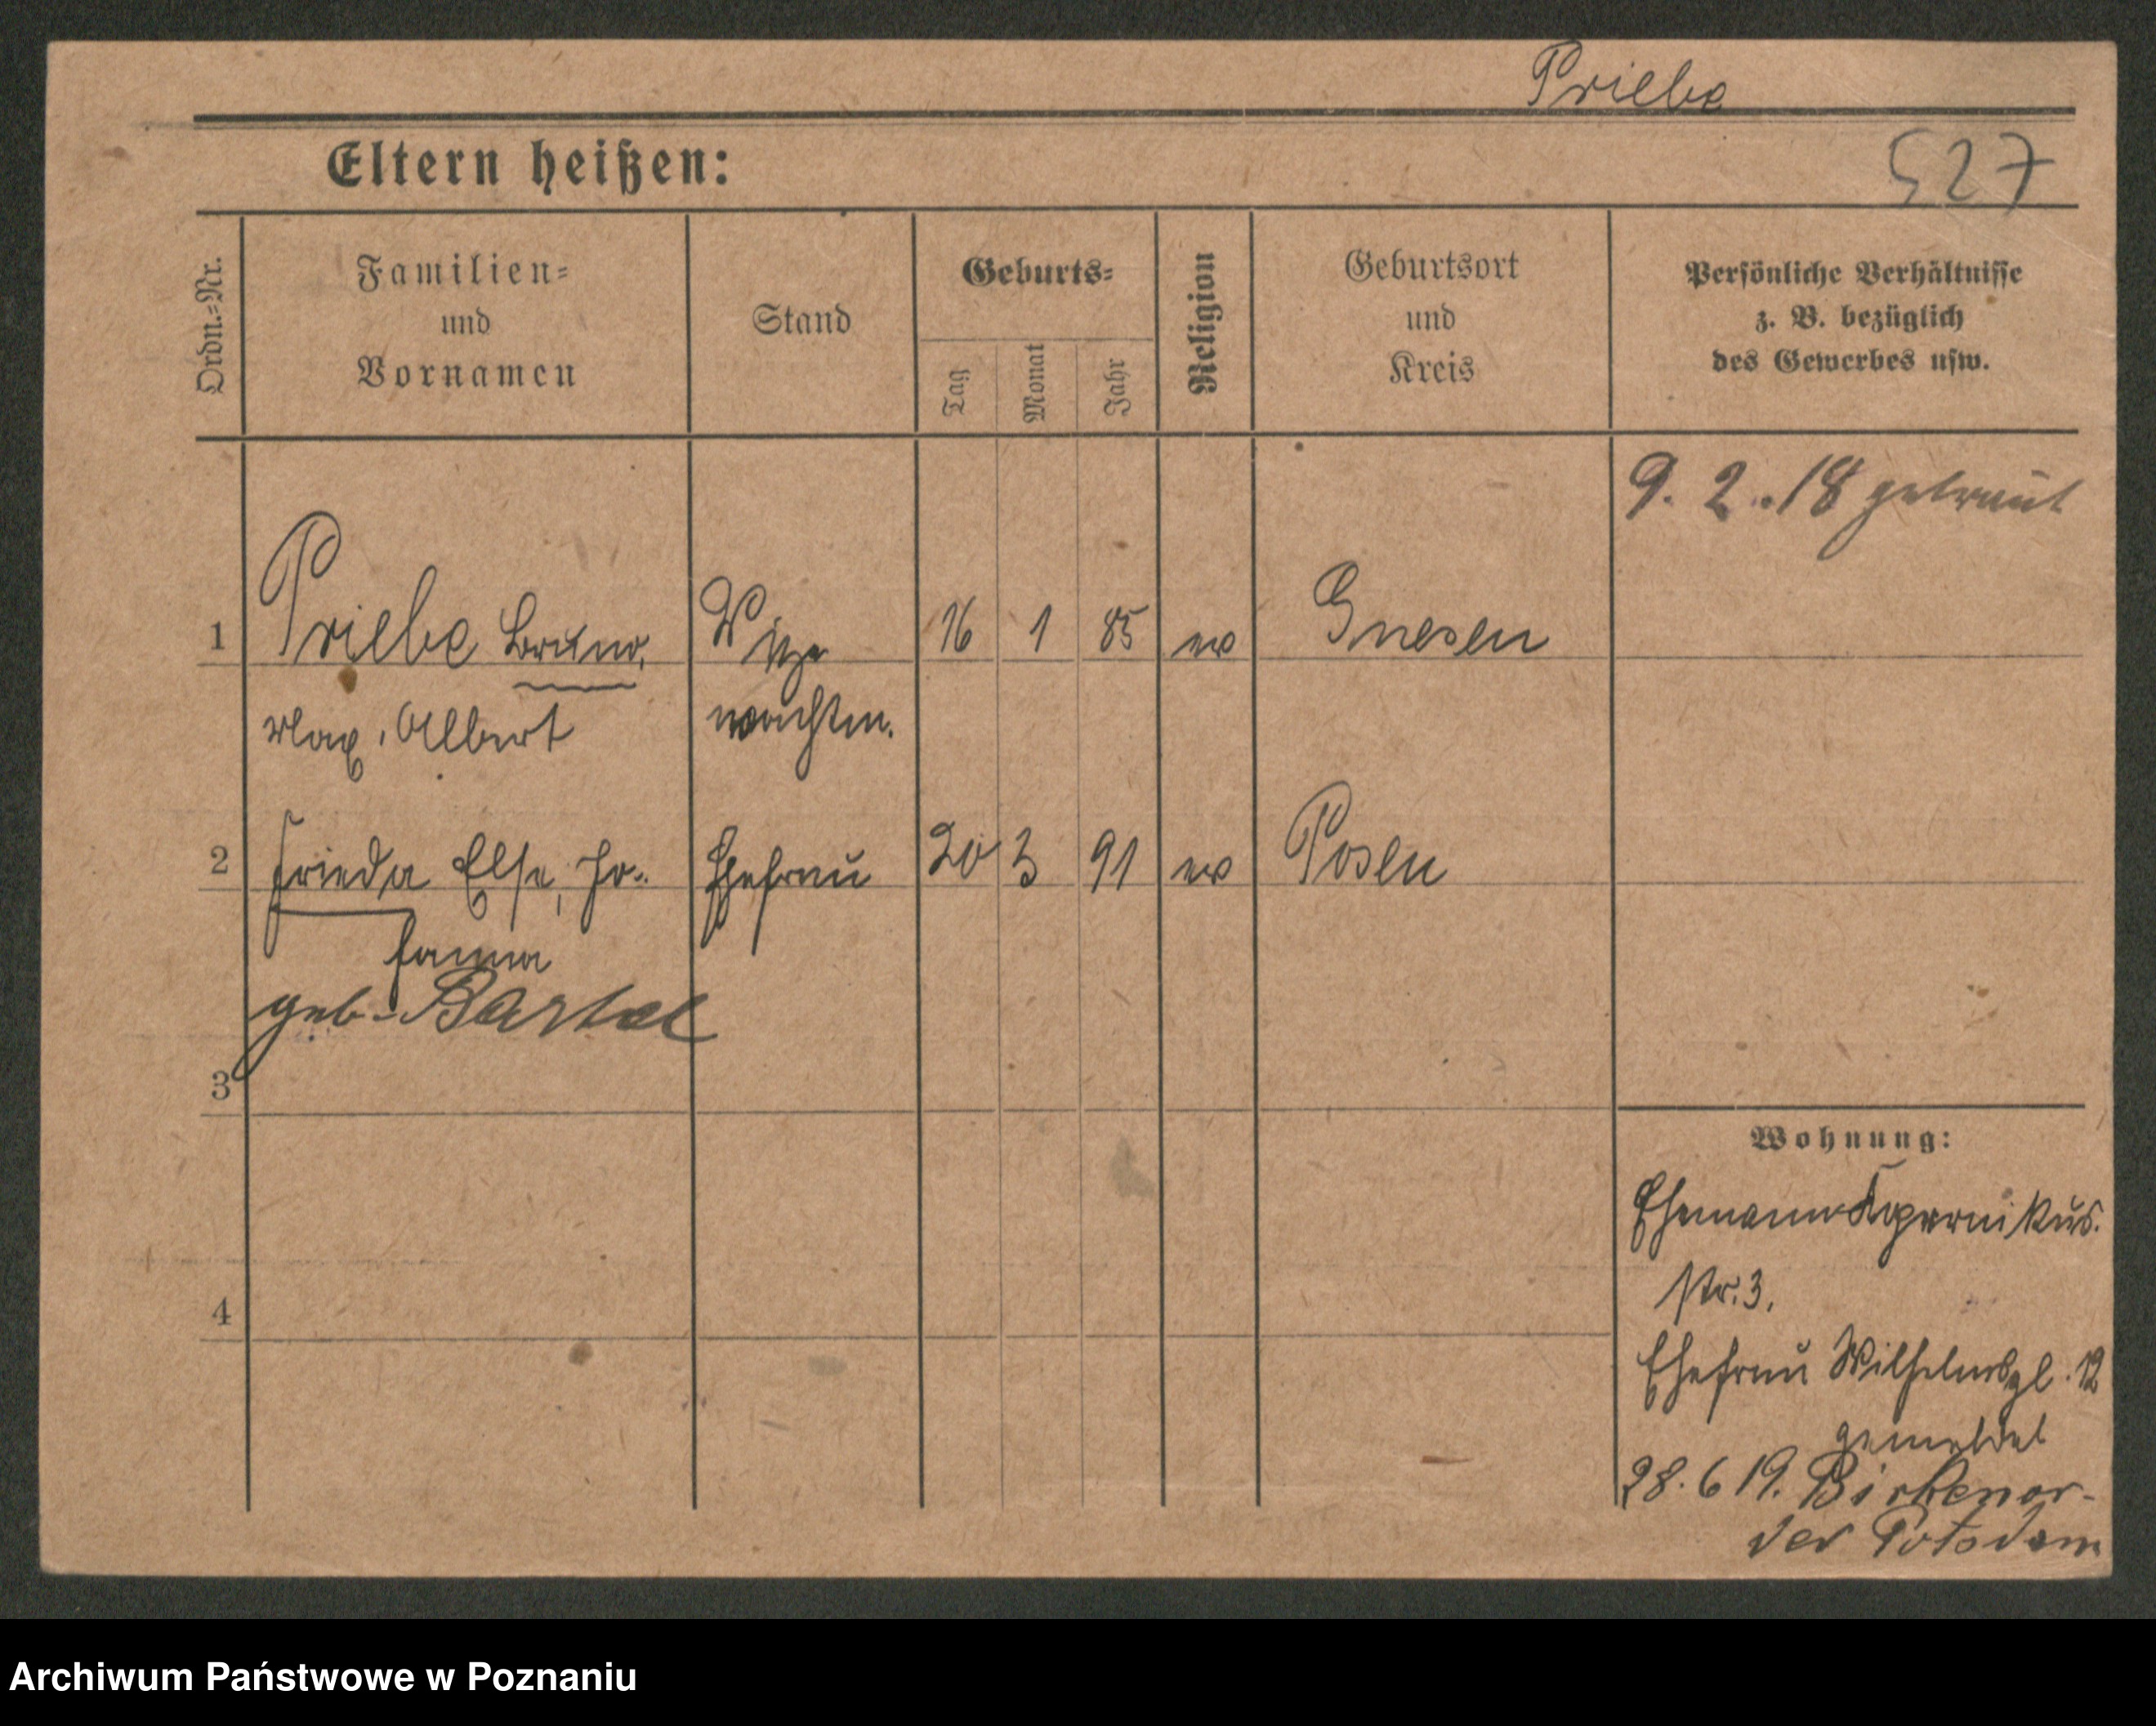 Priebe
Eltern heißen:
527
Ordn.-Nr.
Familien-
und
Vornamen
Stand
Geburts-
Tag
Monat
Jahr
Religion
Geburtsort
und
Kreis
Persönliche Verhältnisse
z. B. bezüglich
des Gewerbes usw.
9. 2. 18 getraut
1 Priebe Bruno, Vize 16 1 85 ev Gnesen
Max, Albert wachtm.
2 Frieda Else, Jo- Ehefrau 20 3 91 ev Posen
hanna
geb. Bartel
3
Wohnung:
Ehemann Kopernikus.
str. 3.
4
Ehefrau Wilhelmspl. 12
gemeldet
28. 6 19. Birkenwer-
der Potsdam
Archiwum Państwowe w Poznaniu